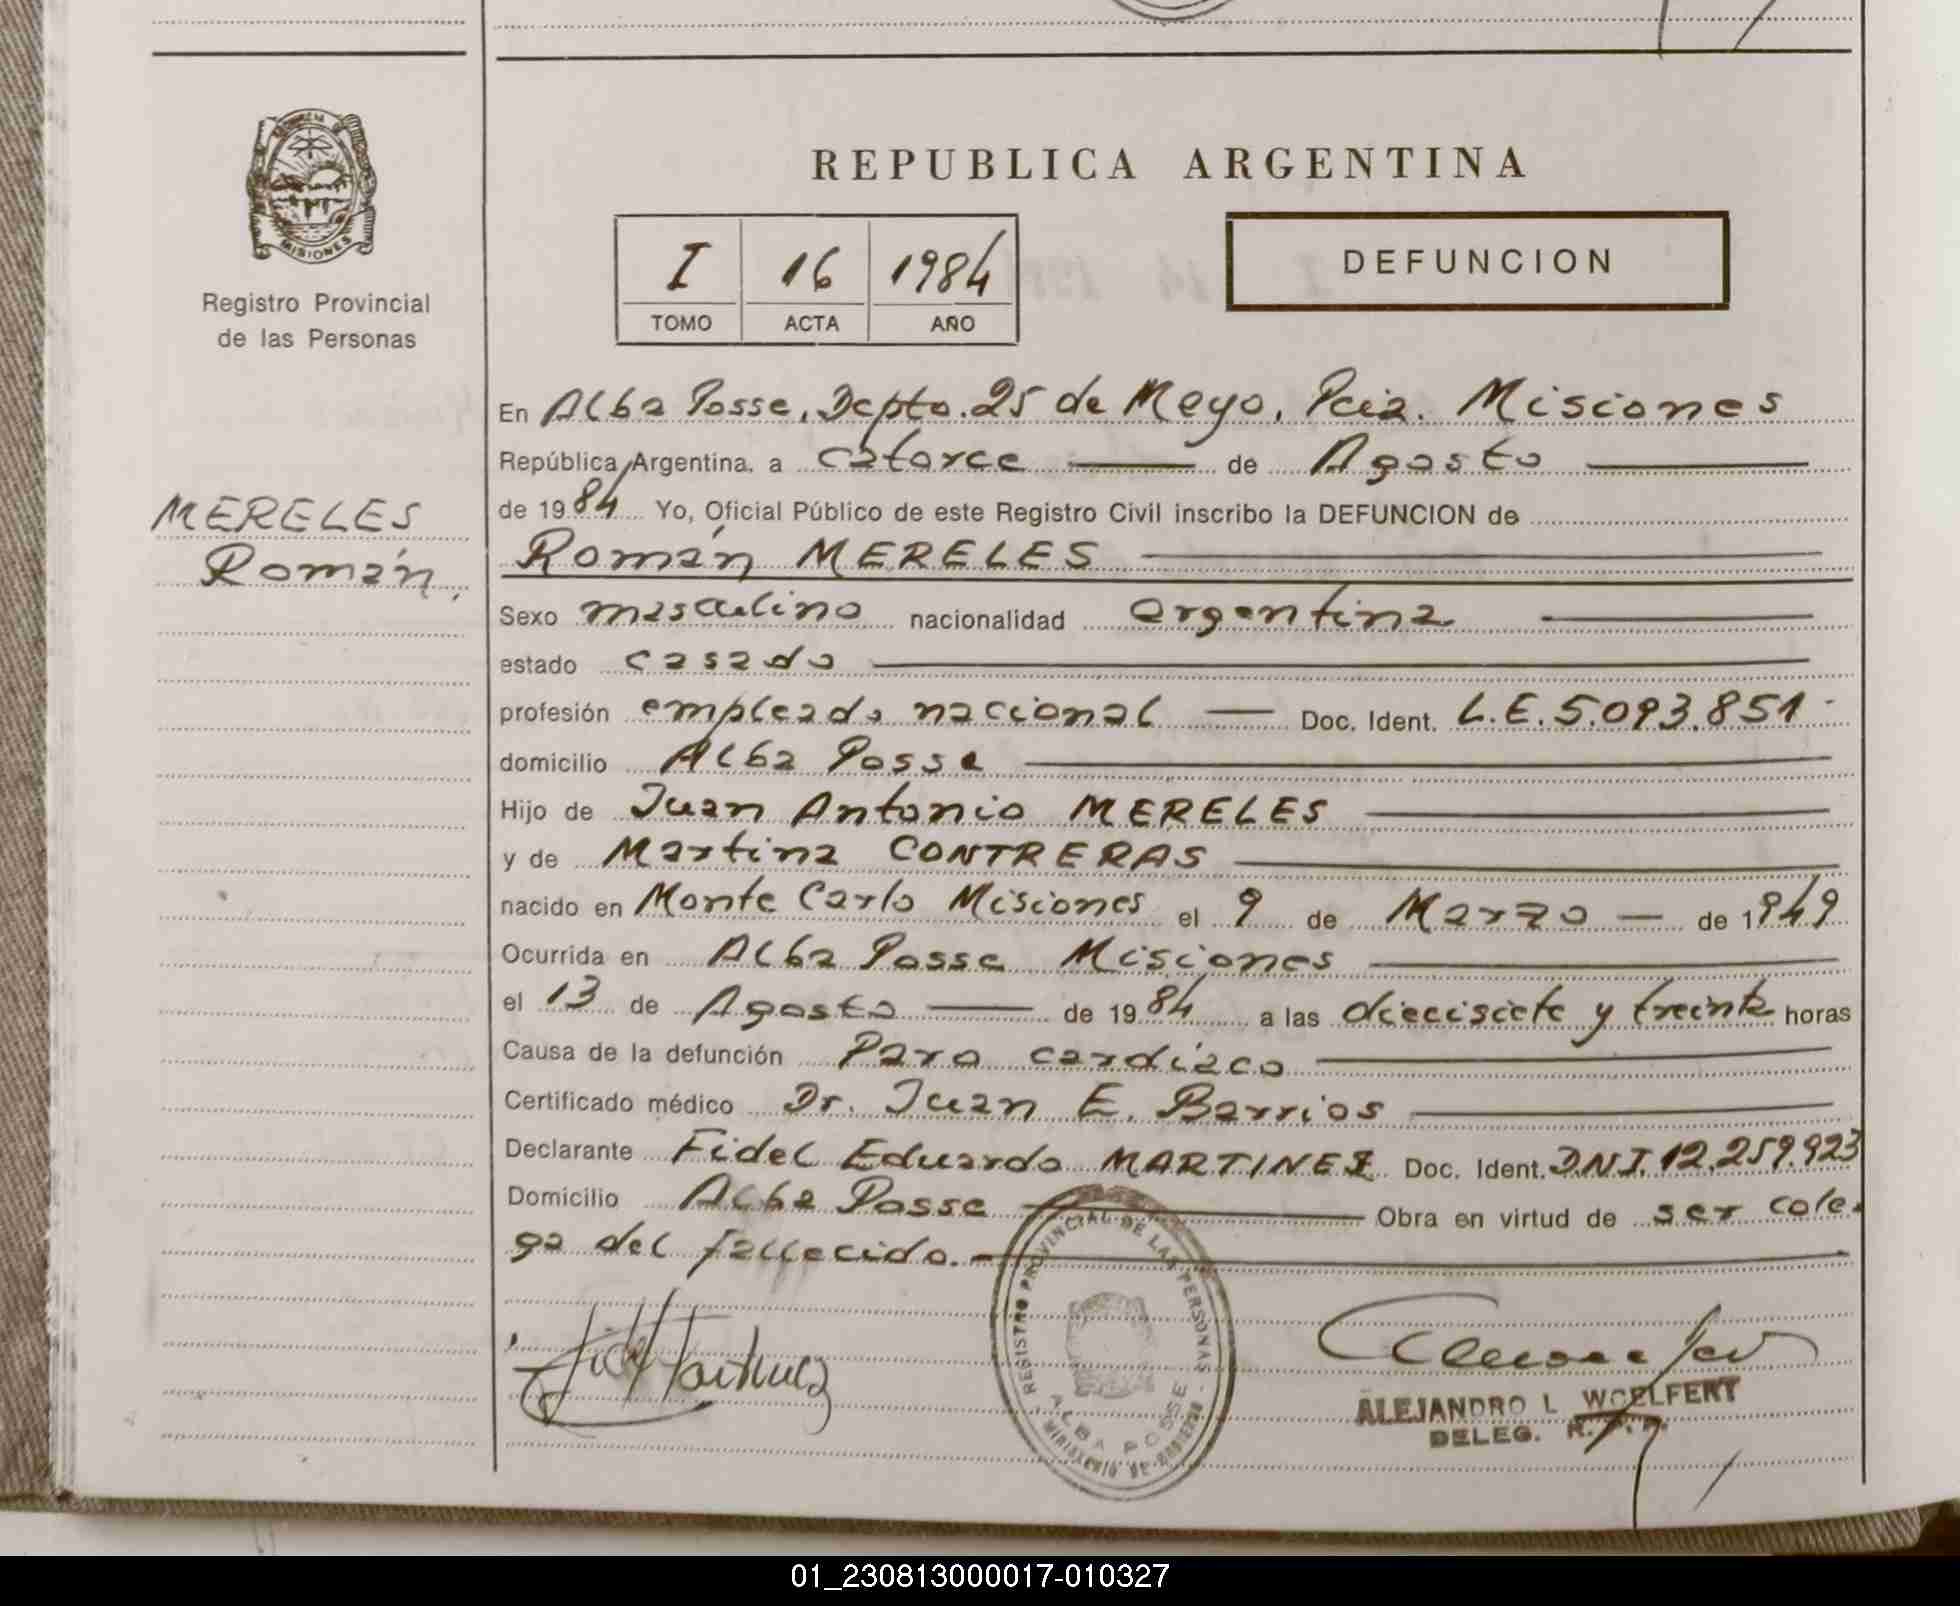 MISIONES
Registro Provincial
de las Personas
MERELES
Román
REPUBLICA ARGENTINA
I 16 1984
TOMO ACTA AÑO
DEFUNCION
En Alba Posse, Depto. 25 de Mayo, Pcia. Misiones
República Argentina, a catorce de Agosto
de 1984 Yo, Oficial Público de este Registro Civil inscribo la DEFUNCION de
Román MERELES
Sexo masculino nacionalidad argentina
estado casado
profesión empleado nacional Doc. Ident. L.E. 5.093.851
domicilio Alba Posse
Hijo de Juan Antonio MERELES
y de Martina CONTRERAS
nacido en Monte Carlo Misiones el 9 de Marzo de 1949
Ocurrida en Alba Posse Misiones
el 13 de Agosto de 1984 a las diecisiete y treinta horas
Causa de la defunción Paro cardíaco
Certificado médico Dr. Juan E. Barrios
Declarante Fidel Eduardo MARTINEZ Doc. Ident. D.N.I. 12.259.923
Domicilio Alba Posse Obra en virtud de ser cole-
ga del fallecido.
Fidel Martinez
REGISTRO PROVINCIAL DE LAS PERSONAS
ALBA POSSE
MINISTERIO DE GOBIERNO
ALEJANDRO L WOELFERT
DELEG. R.P.P.
01_230813000017-010327